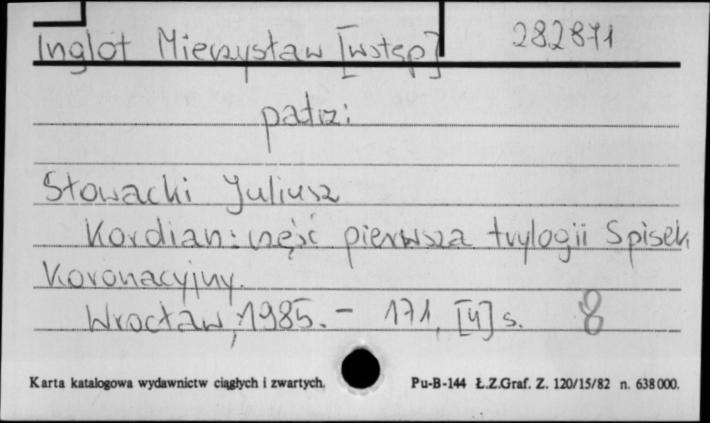 Inglot Mieczysław [wstęp] 282871
patrz:
Słowacki Juliusz
Kordian: część pierwsza trylogii Spisek
Koronacyjny.
Wrocław, 1985. - 171, [4] s. 8
Karta katalogowa wydawnictw ciągłych i zwartych. Pu-B-144 Ł.Z.Graf. Z. 120/15/82 n. 638000.